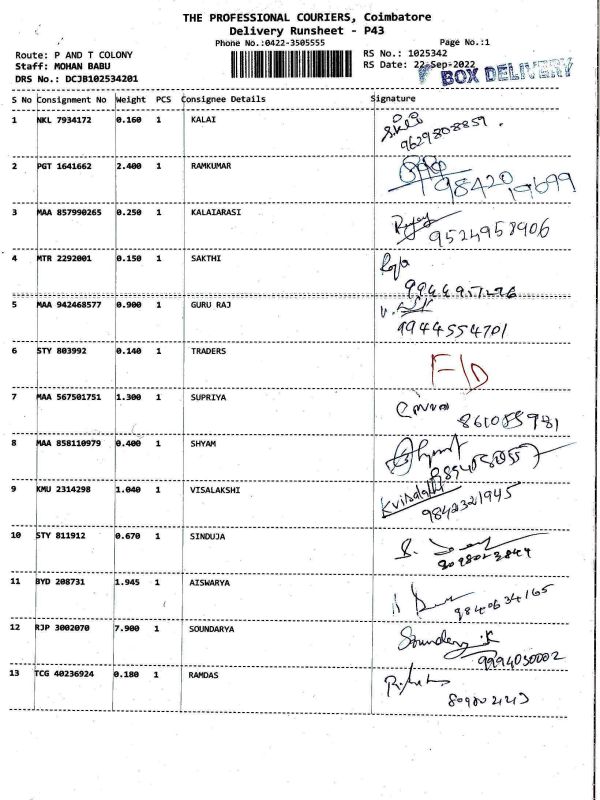 THE PROFESSIONAL COURIERS, Coimbatore
Delivery Runsheet - P43
Phone No.:0422-3505555
Page No.:1
Route: P AND T COLONY
RS No.: 1025342
Staff: MOHAN BABU
RS Date: 22-Sep-2022
DRS No.: DCJB102534201
BOX DELIVERY
S No Consignment No Weight PCS Consignee Details Signature
1 NKL 7934172 0.160 1 KALAI
9629808859.
2 PGT 1641662 2.400 1 RAMKUMAR
98420 19699
3 MAA 857990265 0.250 1 KALAIARASI
9524958906
4 MTR 2292001 0.150 1 SAKTHI
5 MAA 942468577 0.900 1 GURU RAJ
9944554701
6 STY 803992 0.140 1 TRADERS
F/D
7 MAA 567501751 1.300 1 SUPRIYA
8 MAA 858110979 0.400 1 SHYAM
9 KMU 2314298 1.040 1 VISALAKSHI
Kvisalakhi
9842321945
10 STY 811912 0.670 1 SINDUJA
11 BYD 208731 1.945 1 AISWARYA
9840634165
12 RJP 3002070 7.900 1 SOUNDARYA
9994030002
13 TCG 40236924 0.180 1 RAMDAS